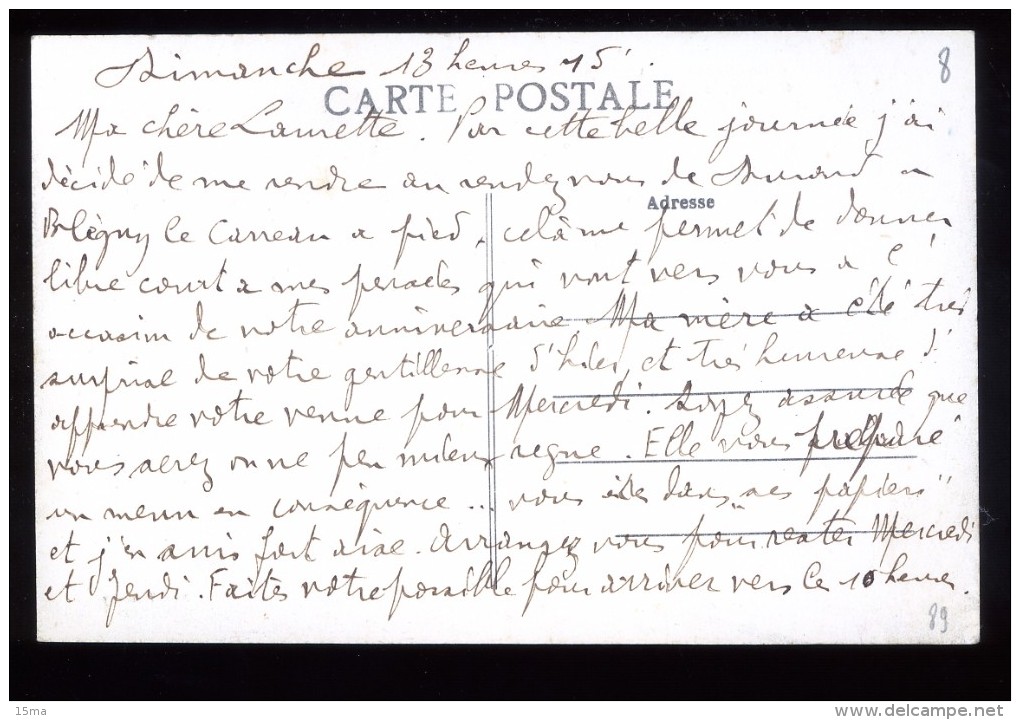 Dimanche 13 heures 15'.
8
CARTE POSTALE
Ma chère Laurette. Par cette belle journée j'ai
décidé de me rendre au rendez vous de Durand a
Adresse
Bligny le Carreau a pied, celà me permet de donner
libre court a mes pensées qui vont vers vous a l'
occasion de votre anniversaire. Ma mère a été très
surprise de votre gentillesse d'hier, et très heureuse d'
apprendre votre venue pour Mercredi. Soyez assurée que
vous serez on ne peu mieux reçue. Elle vous prépare
un menu en conséquence... vous êtes dans ses "papiers"
et j'en suis fort aise. Arrangez vous pour rester Mercredi
et Jeudi. Faites votre possible pour arriver vers les 10 heures.
89
15ma
www.delcampe.net